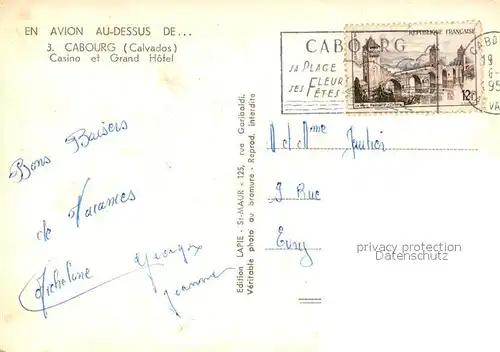 EN AVION AU-DESSUS DE...
3. CABOURG (Calvados)
Casino et Grand Hôtel
CABOURG
SA PLAGE
SES FLEURS
FÊTES
REPUBLIQUE FRANÇAISE
12F
CABO
19
6-
95
VA
Bons Baisers
de Vacances
Micheline Georges
Jeanne
Edition LAPIE - St-MAUR - 125, rue Garibaldi.
Véritable photo au bromure - Reprod. interdite
M et Mme
Rue
Evry
privacy protection
Datenschutz